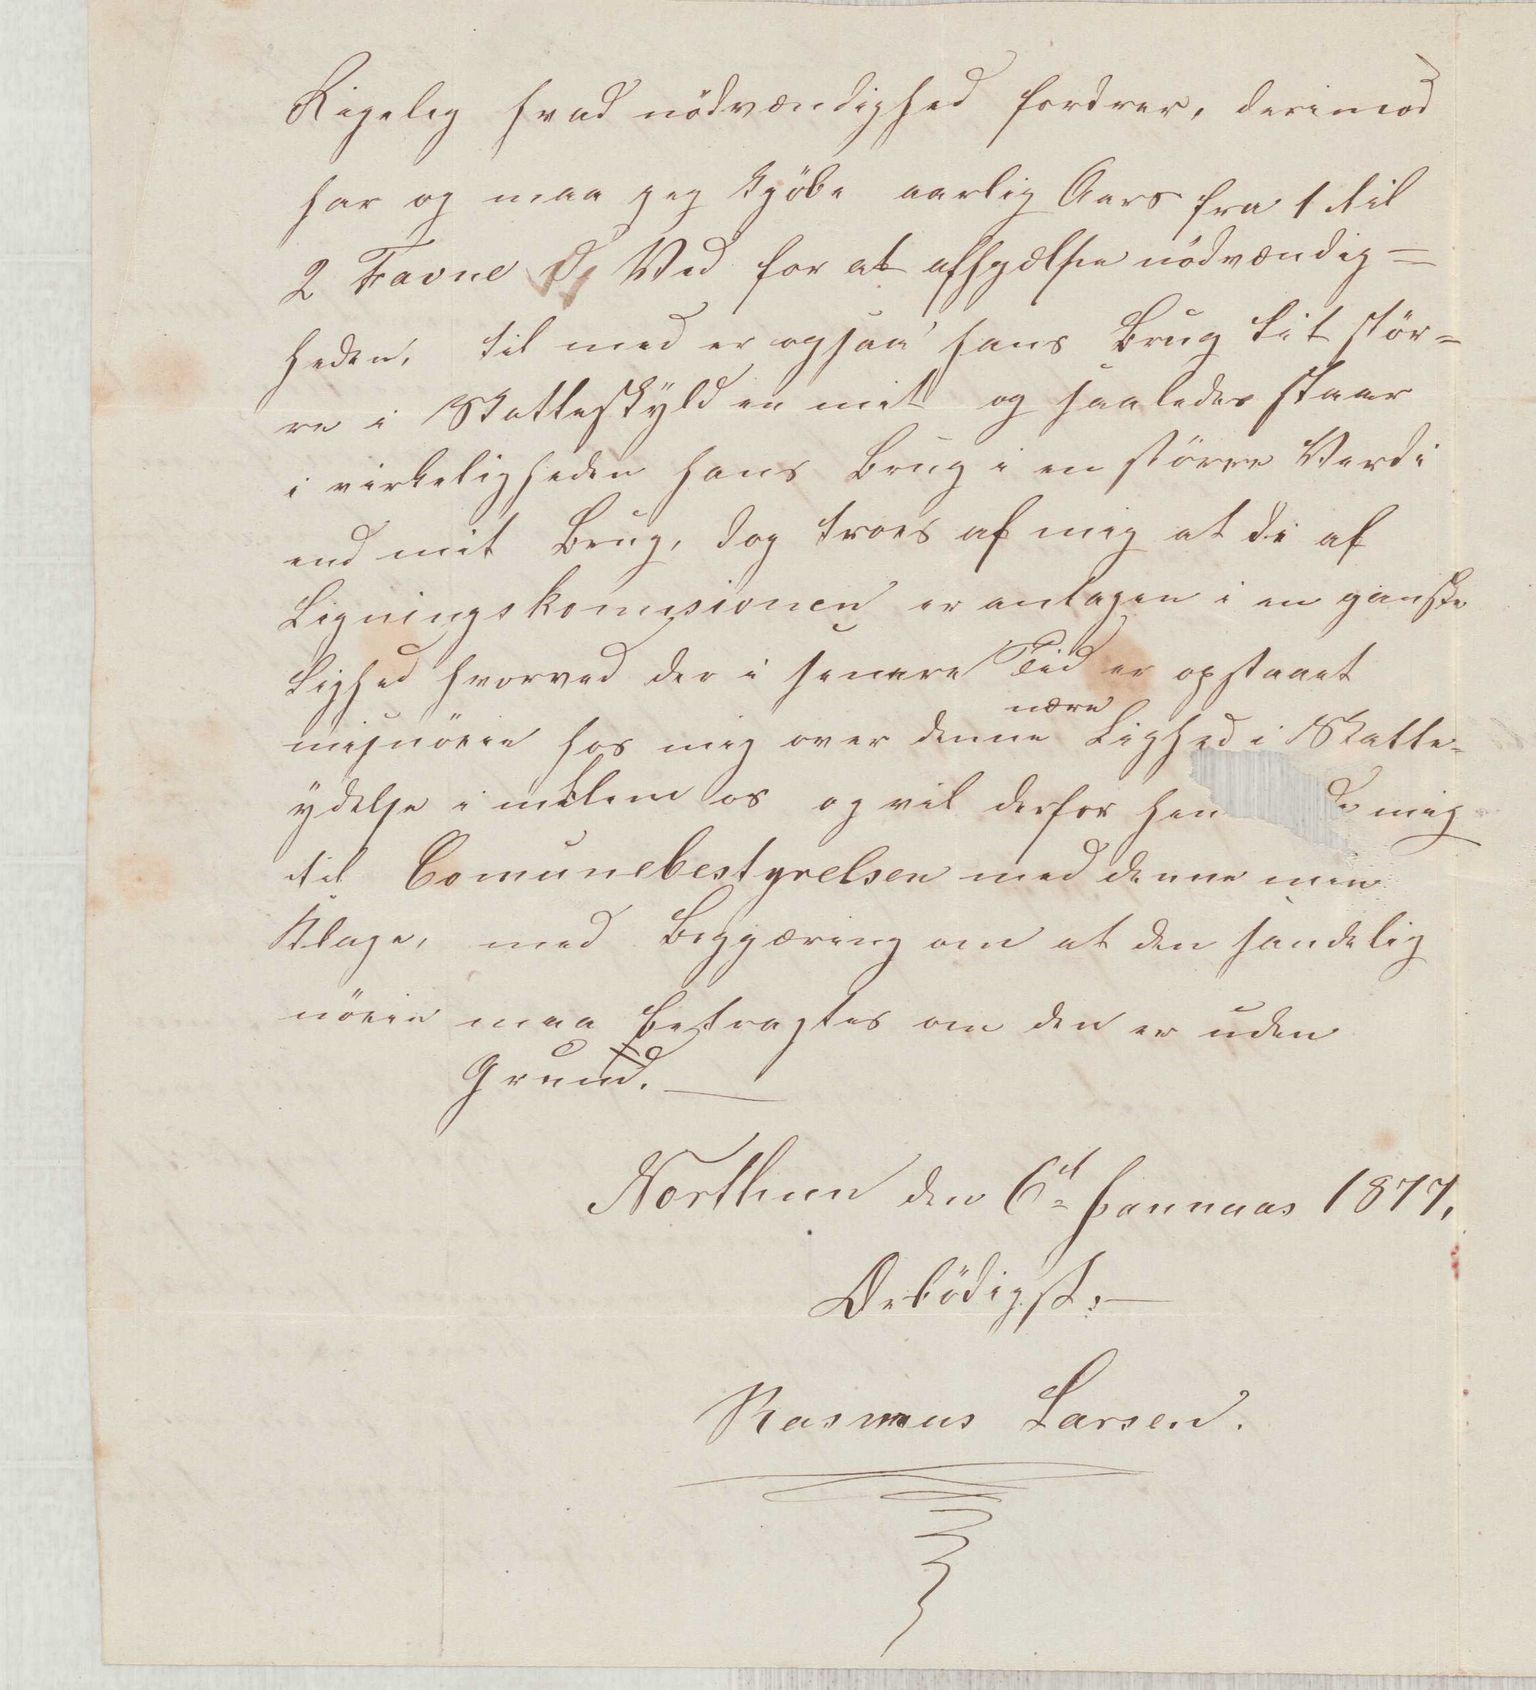 Rigelig hvad nödvændighed fordrer, derimod
har og maa jeg kjöbe aarlig Aars fra 1 til
2 Favne Ved for at afhjælpe nödvændig=
heden, til med er ogsaa hans Brug lit stör=
re i Skatteskyld en mit og saaledes staar
i virkeligheden hans Brug i en större Verdi
end mit Brug, dog troes af mig at di af
Ligningskomisionen er antagen i en ganske
Lighed hvorved der i senere Tid er opstaaet
misnöeie hos mig over denne nære Lighed i Skatte-
ydelse imelem os og vil derfor hen de mig
til Comunebestyrelsen med denne min
Klage, med Begjæring om at den
nöeie maa betragtes om den er uden
Grund.
den 6 1877,
Ærbödigst:
Rasmus Larsen.